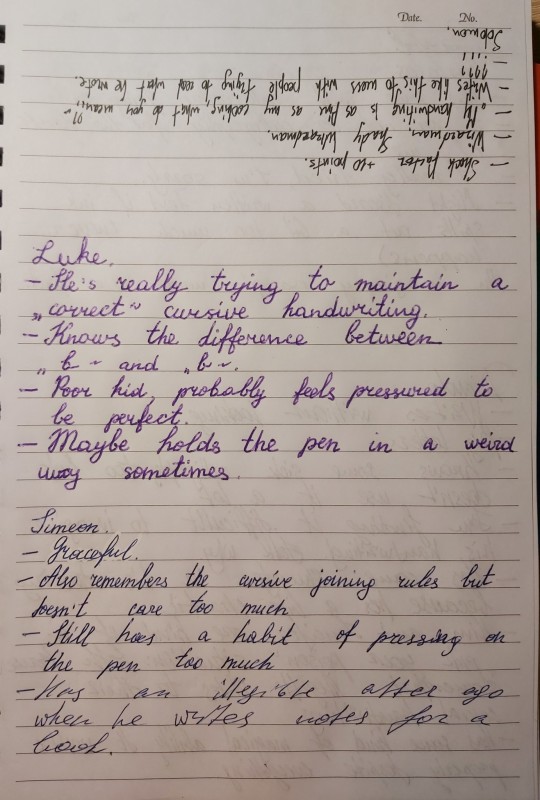 Solomon.
— !!!
????
Writes like this to mess with people trying to read what he wrote.
— „My handwriting is as fine as my cooking, what do you mean“?
— Wizardman. Shady Wizardman.
— Shock factor +10 points.
Date. No.
Luke.
— He's really trying to maintain a
„correct“ cursive handwriting.
— Knows the difference between
„b“ and „b“.
— Poor kid, probably feels pressured to
be perfect.
— Maybe holds the pen in a weird
way sometimes.
Simeon.
— Graceful.
— Also remembers the cursive joining rules but
doesn't care too much
— Still has a habit of pressing on
the pen too much
— Has an illegible alter ego
when he writes notes for a
book.